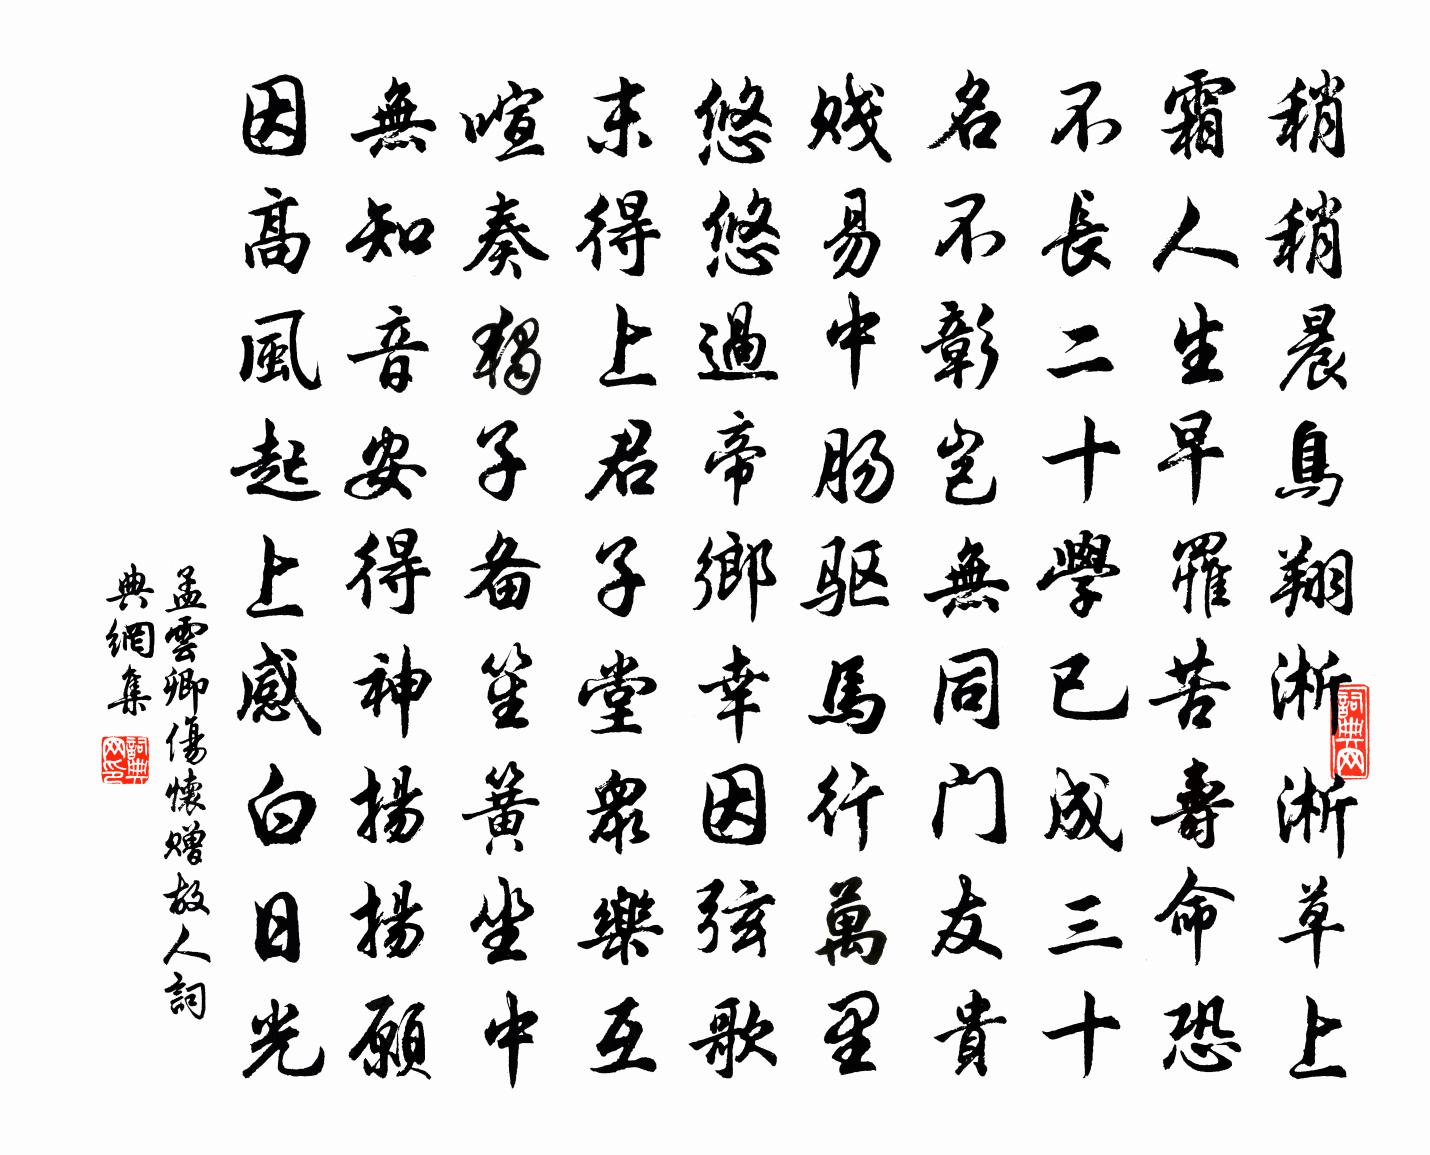 稍稍晨鳥翔淅淅草上
霜人生早罹苦壽命恐
不長二十學已成三十
名不彰豈無同门友貴
贱易中肠驱馬行萬里
悠悠過帝鄉幸因弦歌
末得上君子堂眾樂互
喧奏獨子备笙簧坐中
無知音安得神揚揚願
因高風起上感白日光
孟雲卿傷懷赠故人詞
典網集
詞典网
詞典网印